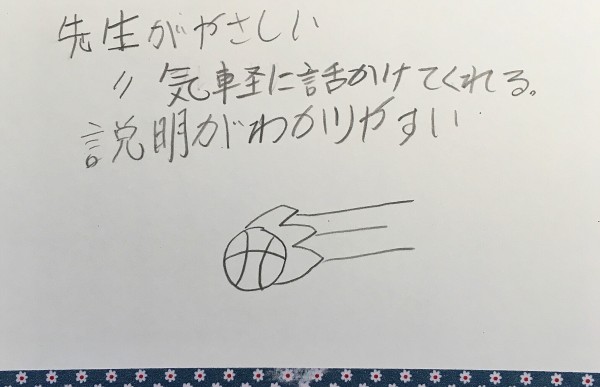 先生がやさしい
〃 気軽に話かけてくれる。
説明がわかりやすい